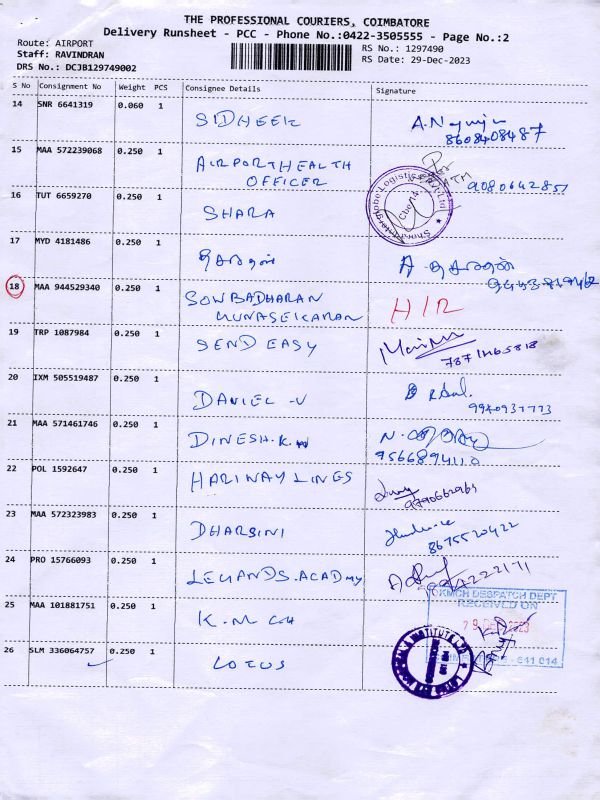 THE PROFESSIONAL COURIERS, COIMBATORE
Delivery Runsheet - PCC - Phone No.:0422-3505555 - Page No.:2
Route: AIRPORT
Staff: RAVINDRAN
DRS No.: DCJB129749002
RS No.: 1297490
RS Date: 29-Dec-2023
S No Consignment No Weight PCS Consignee Details Signature
14 SNR 6641319 0.060 1 SIDHEEK
8608408487
15 MAA 572239068 0.250 1 AIRPORT HEALTH
OFFICER
9080642851
16 TUT 6659270 0.250 1 SHARA
17 MYD 4181486 0.250 1
18 MAA 944529340 0.250 1 SOWBADHARAN
GUNASEKARAN H/R
19 TRP 1087984 0.250 1 SEND EASY
20 IXM 505519487 0.250 1 DANIEL -V
21 MAA 571461746 0.250 1 DINESH.K
22 POL 1592647 0.250 1 HARIWAY LINGS
23 MAA 572323983 0.250 1 DHARSINI
8675520422
24 PRO 15766093 0.250 1 LEHANDS.ACADMY
25 MAA 101881751 0.250 1 K.M CH
KMCH DESPATCH DEPT
RECEIVED ON
29 DEC 2023
641 014
26 SLM 336064757 0.250 1 LOTUS